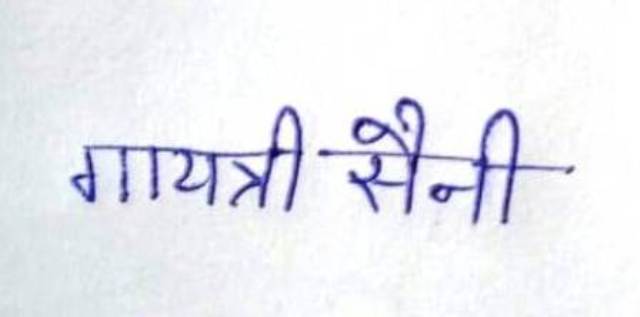 गायत्री सैनी